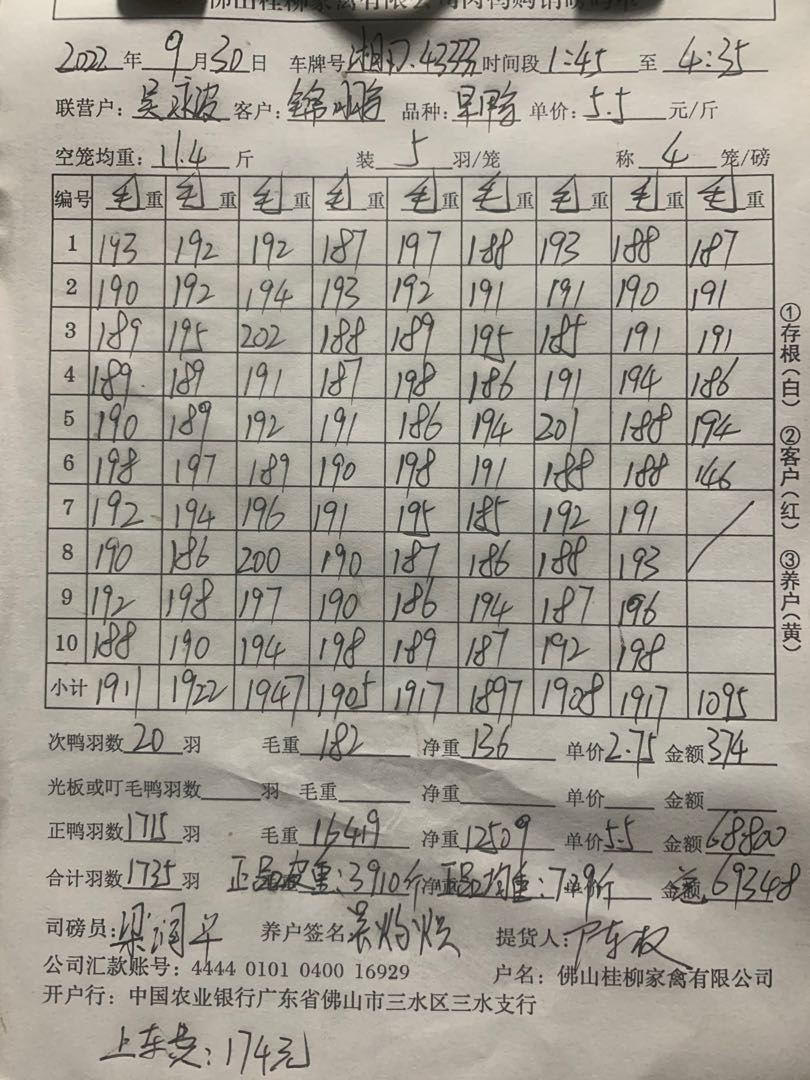 佛山桂柳家禽有限公司肉鸭购销磅码单
2022年9月30日 车牌号 时间段1:45至4:35
联营户:吴 波 客户:锦 品种: 鸭 单价:5.5元/斤
空笼均重:11.4斤 装5羽/笼 称4笼/磅
编号 毛重 毛重 毛重 毛重 毛重 毛重 毛重 毛重 毛重
1 193 192 192 187 197 188 193 188 187
2 190 192 194 193 192 191 191 190 191
3 189 195 202 188 189 195 185 191 191
4 189 189 191 187 198 186 191 194 186
5 190 189 192 191 186 194 201 188 194
6 198 197 189 190 198 191 188 188 146
7 192 194 196 191 195 185 192 191
8 190 186 200 190 187 186 188 193
9 192 198 197 190 186 194 187 196
10 188 190 194 198 189 187 192 198
小计 1911 1922 1947 1905 1917 1897 1908 1917 1095
次鸭羽数20羽 毛重182 净重136 单价2.75 金额374
光板或叮毛鸭羽数 羽 毛重 净重 单价 金额
正鸭羽数1715羽 毛重16419 净重12509 单价5.5 金额68800
合计羽数1735羽 正品皮重:3910斤 正品均重:7.29斤 69348
司磅员:梁润 养户签名 吴灼 提货人:
公司汇款账号:4444 0101 0400 16929 户名:佛山桂柳家禽有限公司
开户行:中国农业银行广东省佛山市三水区三水支行
上车费:174元
①存根(白) ②客户(红) ③养户(黄)